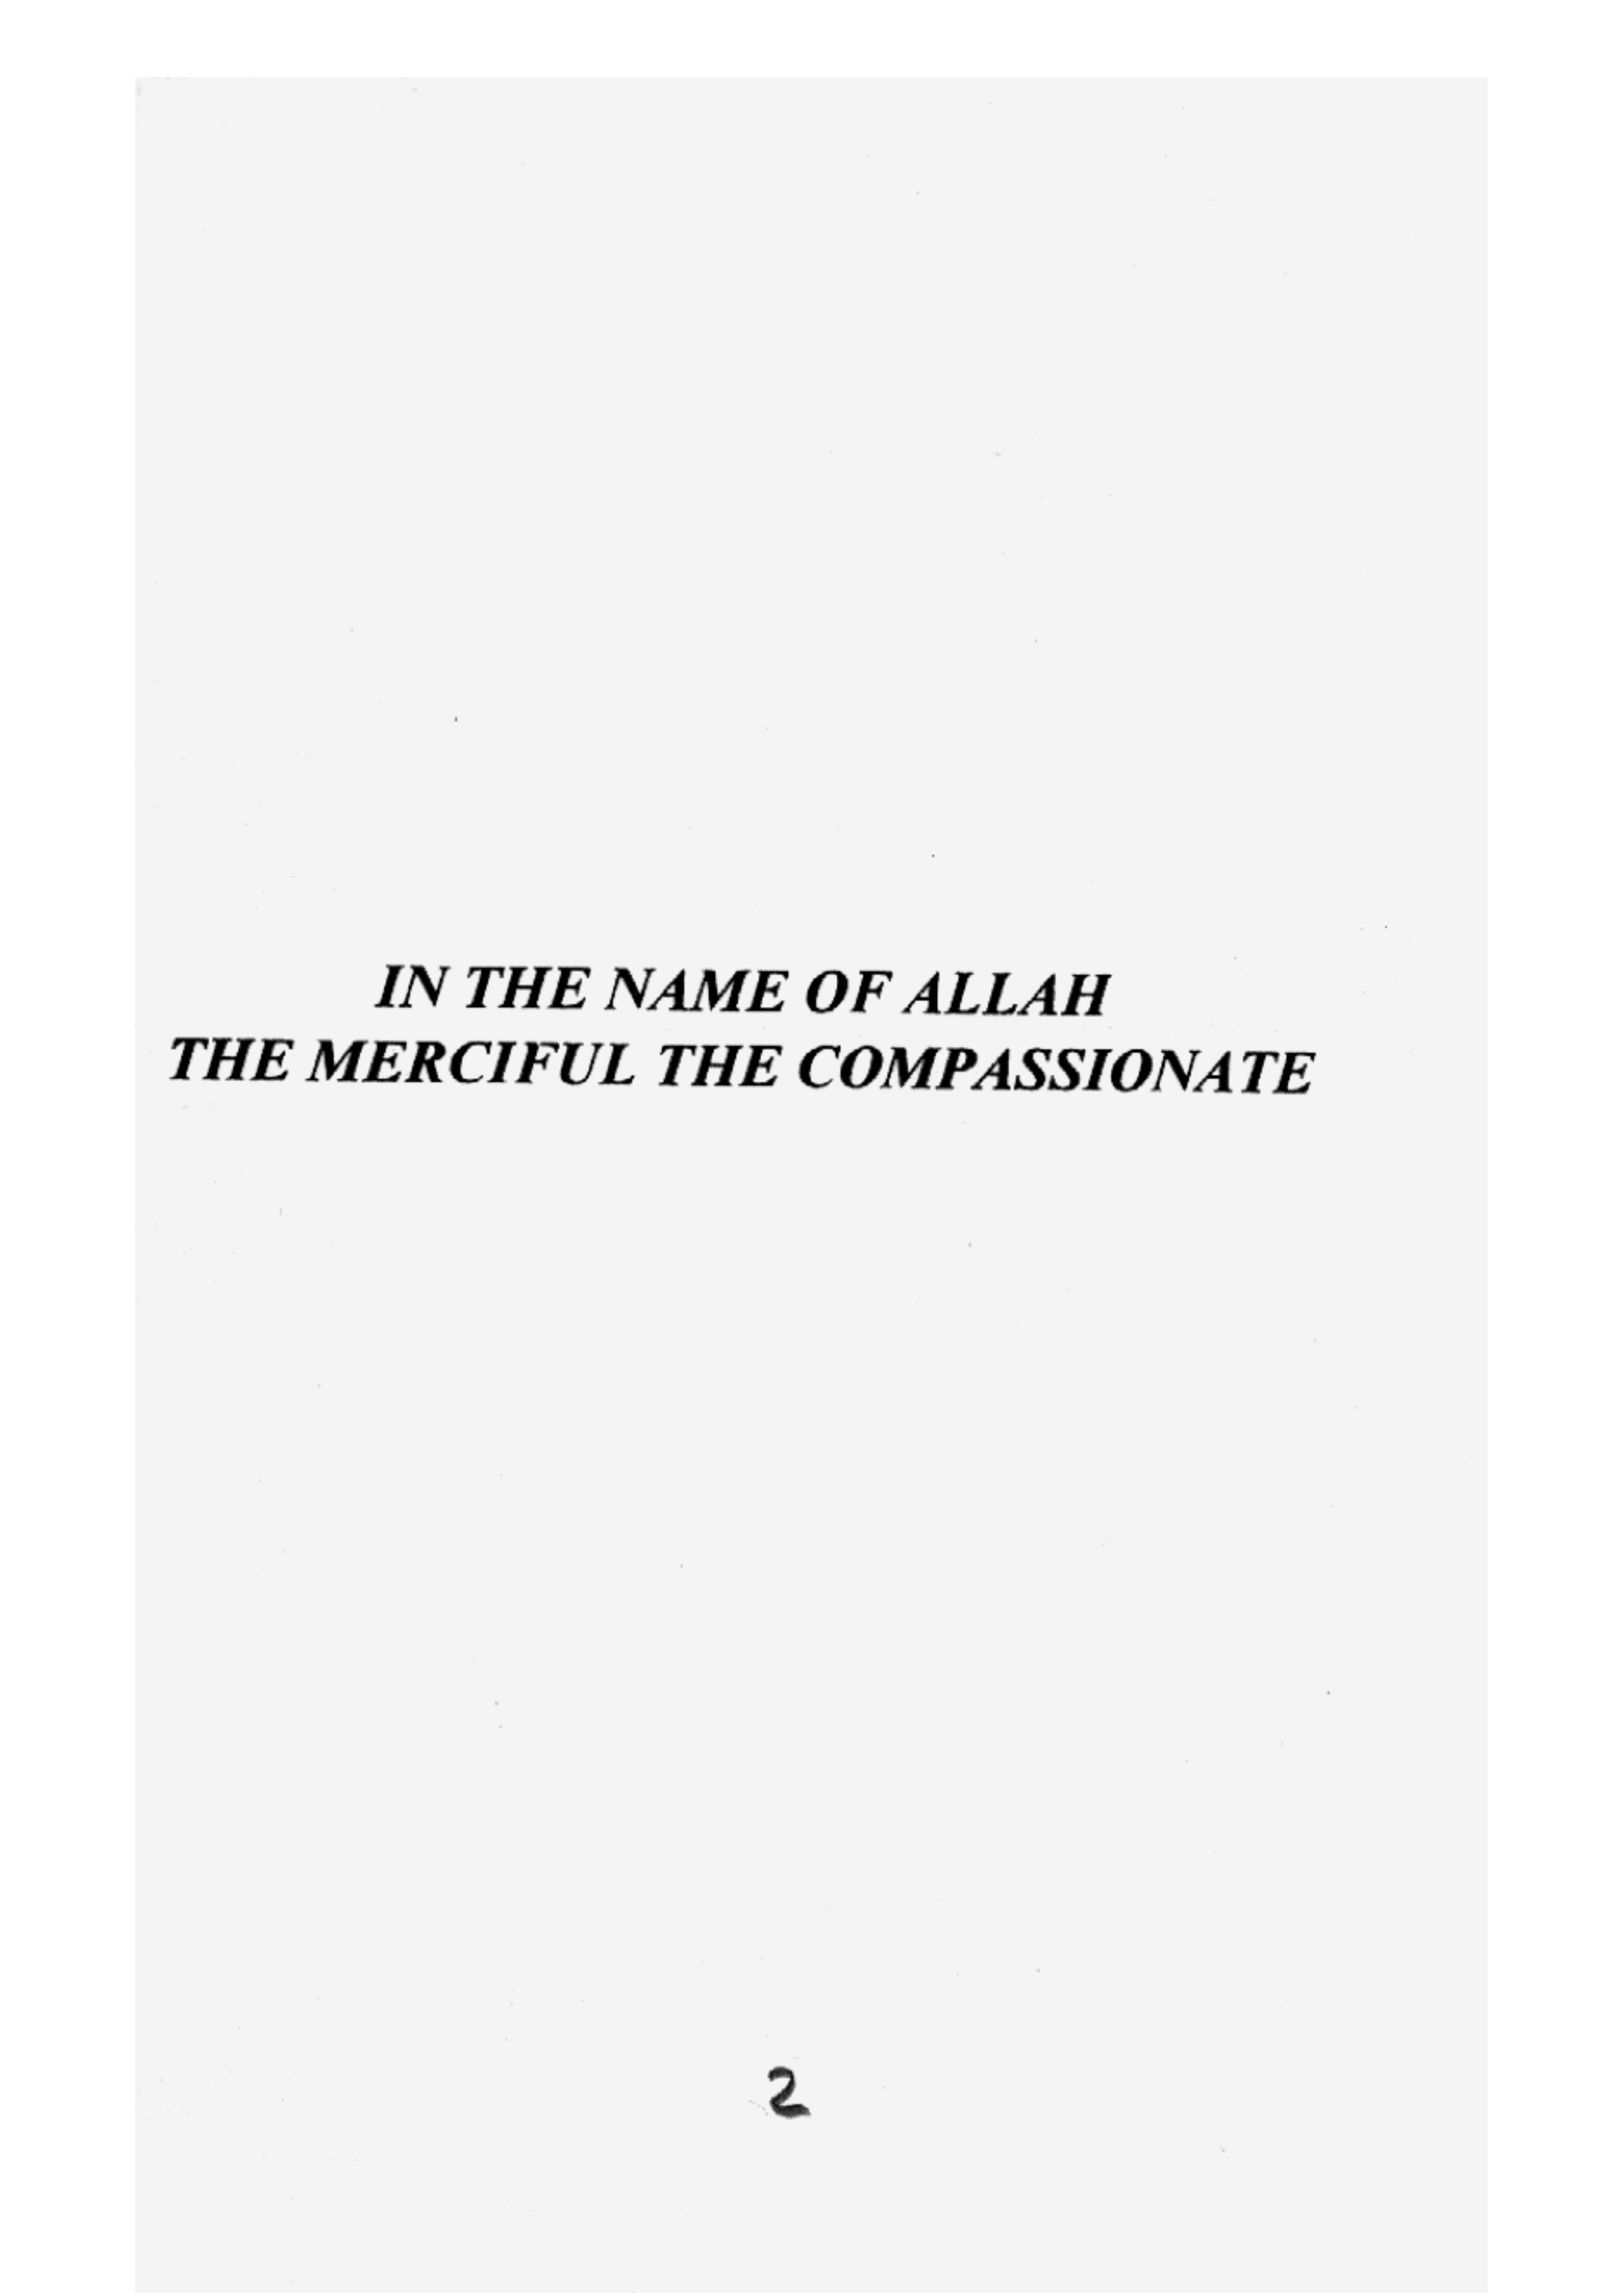 IN THE NAME OF ALLAH
THE MERCIFUL THE COMPASSIONATE
2